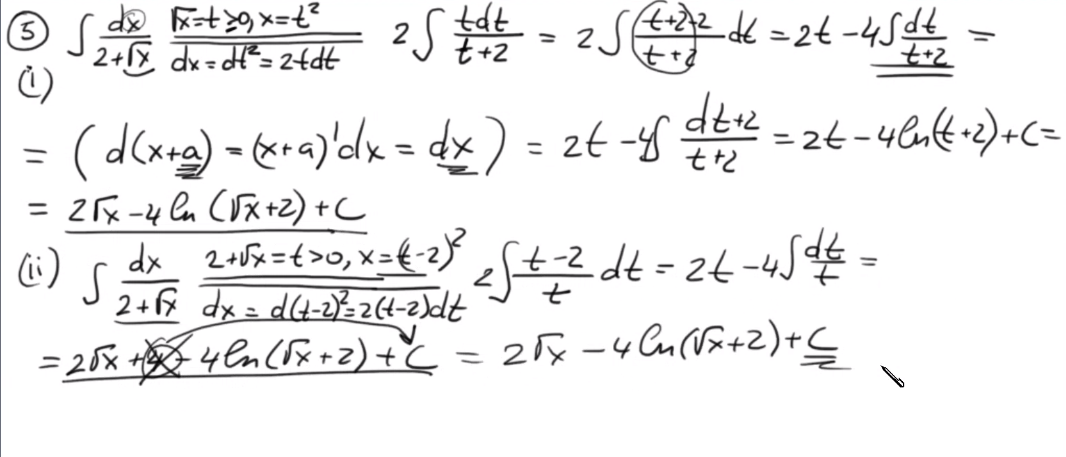 ⑤ ∫ dx/(2+√x) √x=t≥0, x=t² dx=dt²=2tdt 2∫ tdt/(t+2) = 2∫ (t+2)-2/(t+2) dt = 2t-4∫ dt/(t+2) =
(i)
= (d(x+a) = (x+a)'dx = dx) = 2t-4∫ dt+2/(t+2) = 2t-4ln(t+2)+C=
= 2√x-4 ln (√x+2)+C
(ii) ∫ dx/(2+√x) 2+√x=t>0, x=(t-2)² dx = d(t-2)²=2(t-2)dt 2∫ (t-2)/t dt = 2t-4∫ dt/t =
= 2√x+4-4ln(√x+2)+C = 2√x-4 ln(√x+2)+C